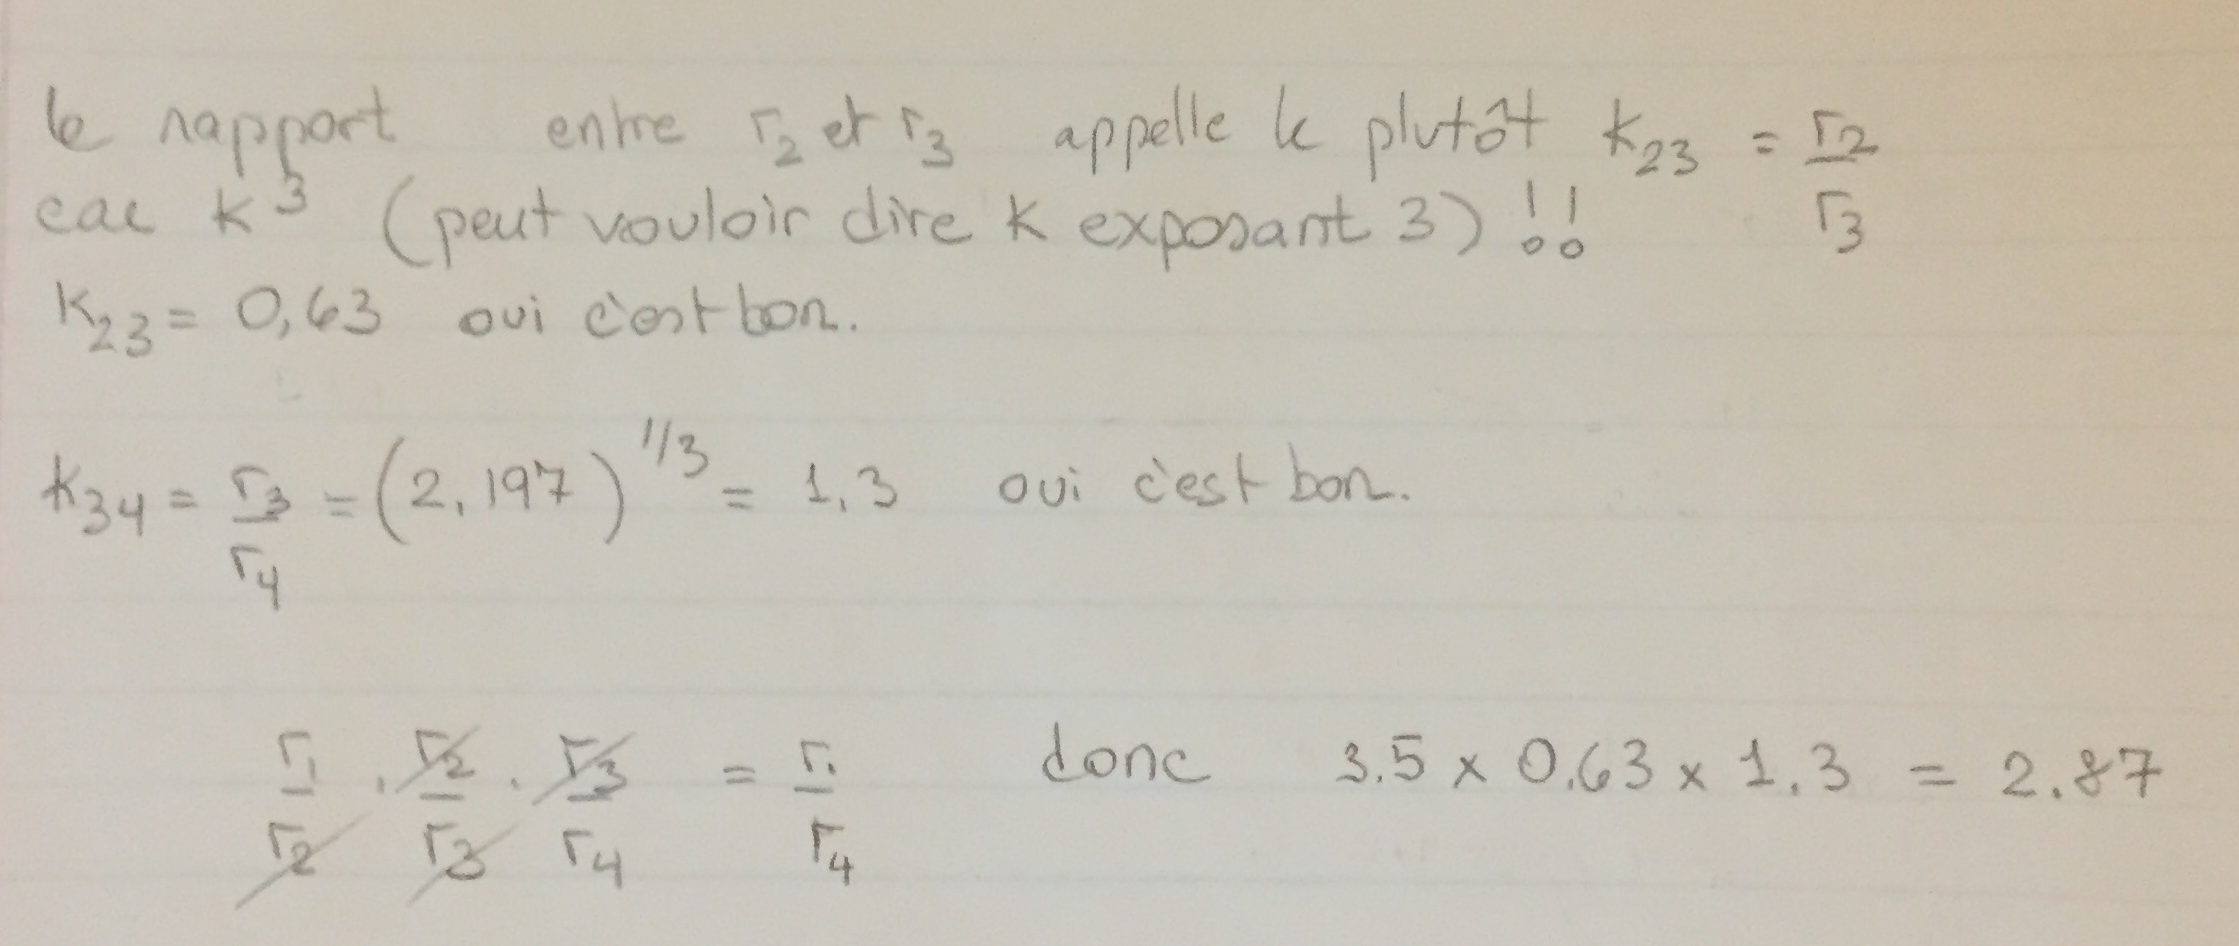 le rapport entre r₂ et r₃ appelle le plutôt K₂₃ = r₂/r₃
car K³ (peut vouloir dire K exposant 3) !!
K₂₃ = 0,63 oui c'est bon.
K₃₄ = r₃/r₄ = (2,197)^1/3 = 1,3 oui c'est bon.
r₁/r₂ . r₂/r₃ . r₃/r₄ = r₁/r₄ donc 3.5 x 0.63 x 1.3 = 2.87